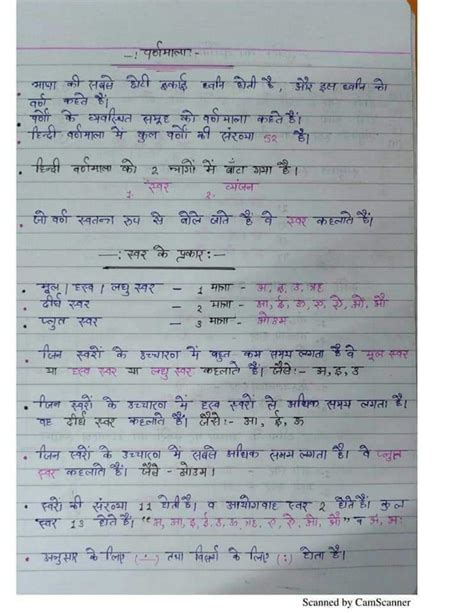 —: वर्णमाला :-
• भाषा की सबसे छोटी इकाई ध्वनि होती है, और इस ध्वनि को
वर्ण कहते हैं।
• वर्णों के व्यवस्थित समूह को वर्णमाला कहते हैं।
• हिन्दी वर्णमाला में कुल वर्णों की संख्या 52 है।
• हिन्दी वर्णमाला को 2 भागों में बाँटा गया है।
1. स्वर 2. व्यंजन
• जो वर्ण स्वतन्त्र रुप से बोले जाते हैं वे स्वर कहलाते हैं।
—: स्वर के प्रकार :—
• मूल / ह्रस्व / लघु स्वर — 1 मात्रा - अ, इ, उ, ऋ
• दीर्घ स्वर — 2 मात्रा - आ, ई, ऊ, ए, ऐ, ओ, औ
• प्लुत स्वर — 3 मात्रा - ओउम
• जिन स्वरों के उच्चारण में बहुत कम समय लगता है वे मूल स्वर
या ह्रस्व स्वर या लघु स्वर कहलाते हैं। जैसे:- अ, इ, उ
• जिन स्वरों के उच्चारण में ह्रस्व स्वरों से अधिक समय लगता है।
वह दीर्घ स्वर कहलाते हैं। जैसे:- आ, ई, ऊ
• जिन स्वरों के उच्चारण में सबसे अधिक समय लगता है। वे प्लुत
स्वर कहलाते हैं। जैसे - ओउम।
• स्वरों की संख्या 11 होती है। व आयोगवाह स्वर 2 होते हैं। कुल
स्वर 13 होते हैं। "अ, आ, इ, ई, उ, ऊ, ऋ, ए, ऐ, ओ, औ" व अं, अः
• अनुसार के लिए (ं) तथा विसर्ग के लिए (:) होता है।
Scanned by CamScanner